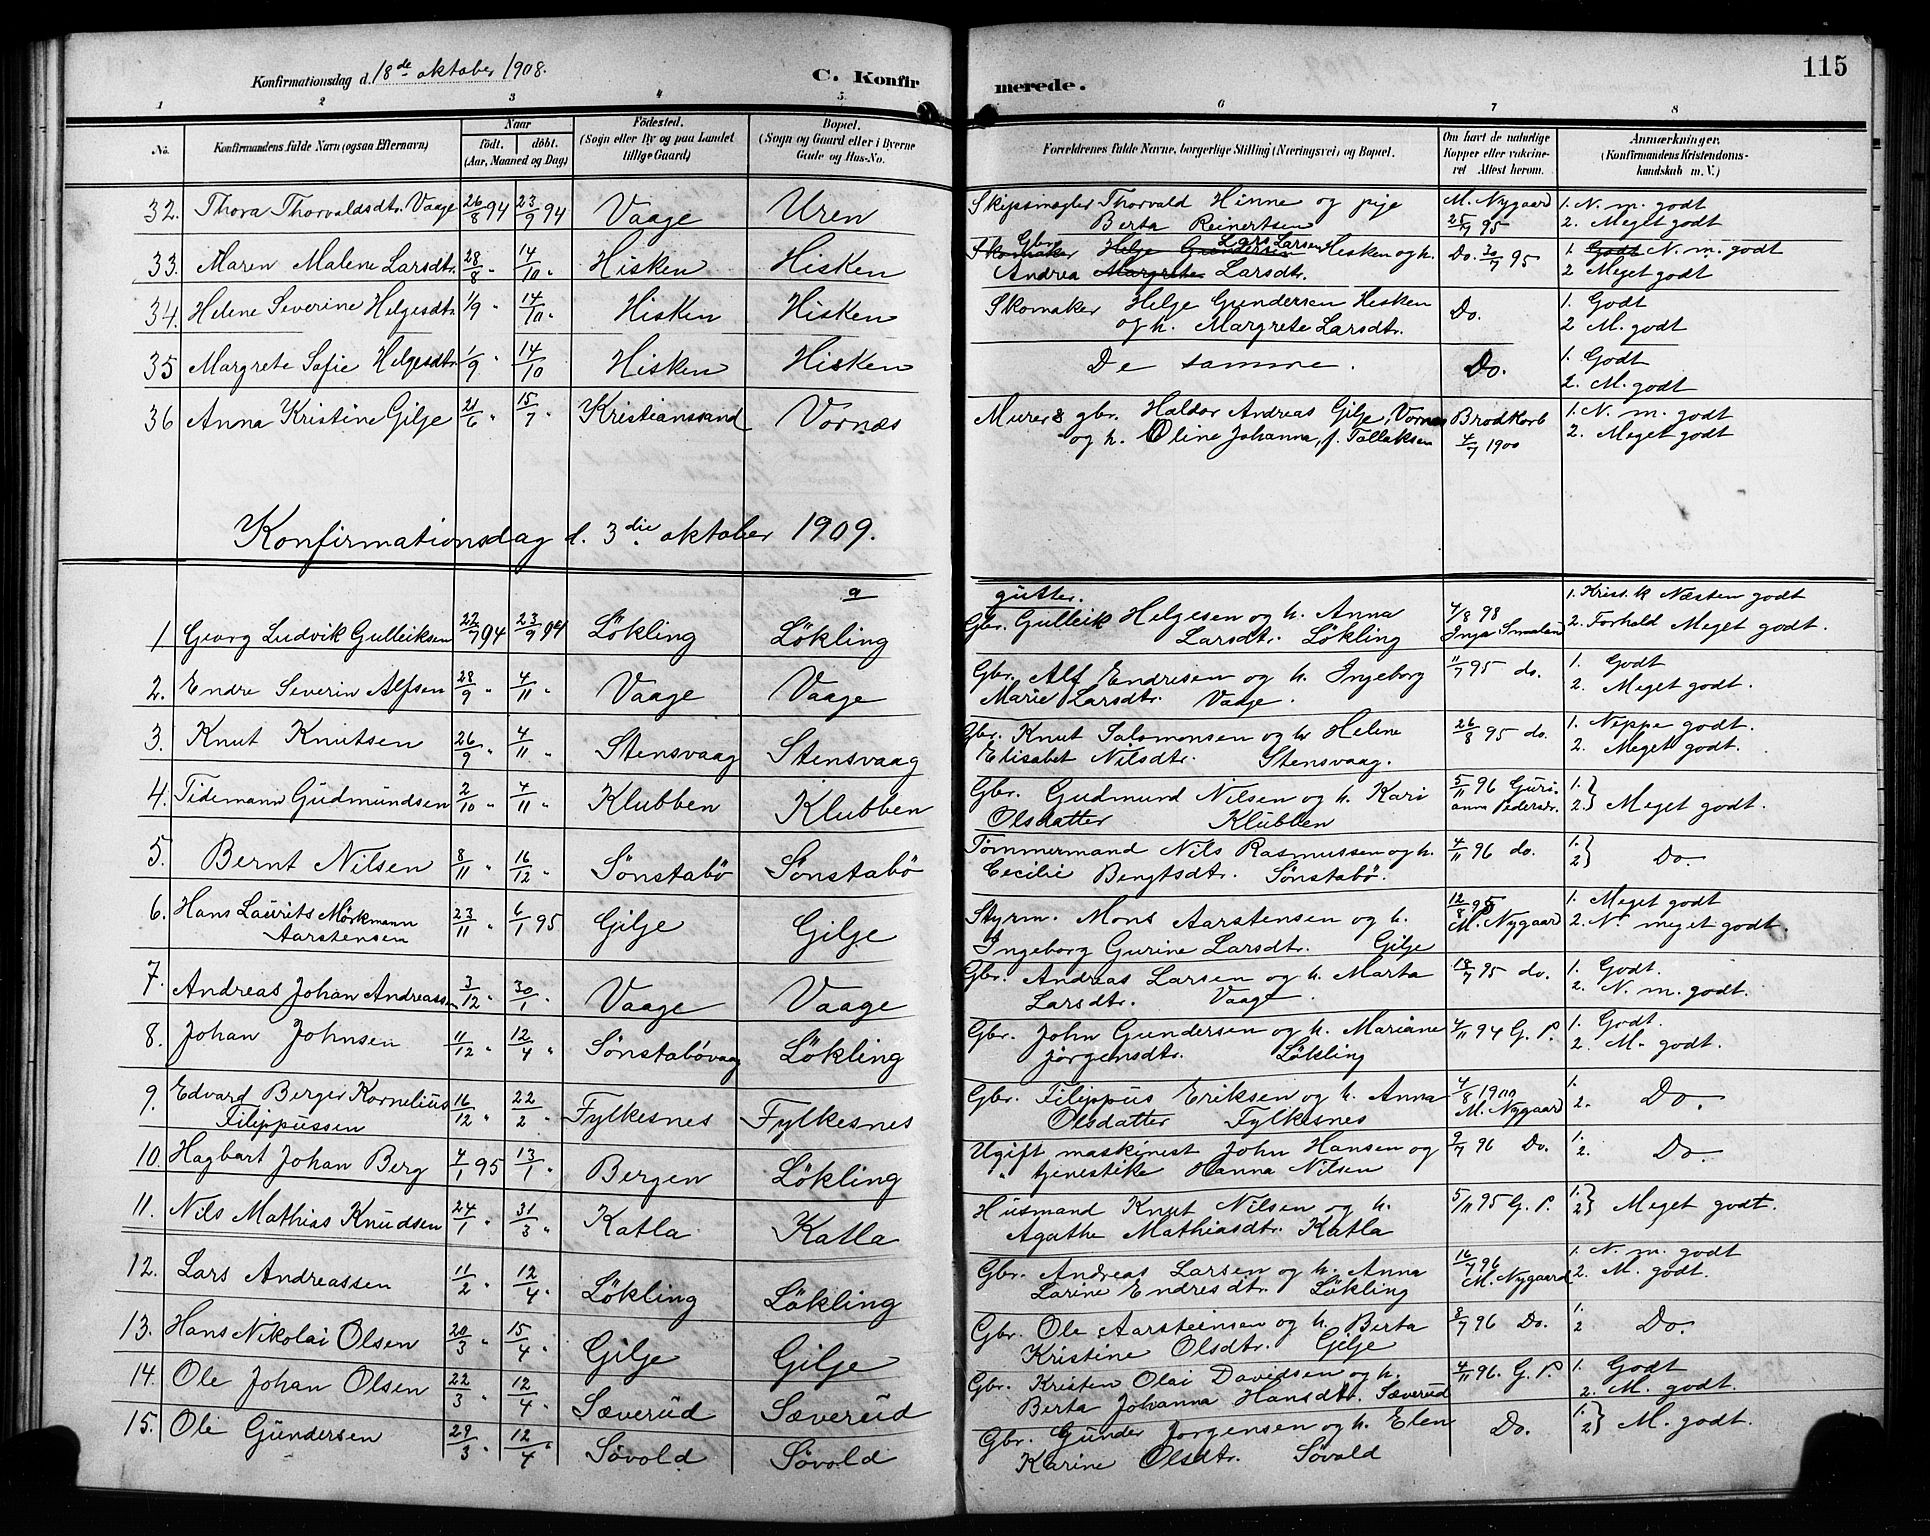 Konfirmationsdag d. 18de oktober 1908.
C. Konfir
merede.
115
1 2 3 4 5 6 7 8
No. Konfirmandens fulde Navn (ogsaa Efternavn) Naar födt. döbt. (Aar, Maaned og Dag) Födested. (Sogn eller By og paa Landet tillige Gaard) Bopæl. (Sogn og Gaard eller i Byerne Gade og Hus-No. Forældrenes fulde Navne, borgerlige Stilling (Næringsvei) og Bopæl. Om havt de naturlige Kopper eller vakcineret. Attest herom. Anmærkninger. (Konfirmandens Kristendomskundskab m. V.)
32. Thora Thorvaldsdtr. Vaage 26/8 94 23/9 94 Vaage Uren Skipsmægler Thorvald Hinne og pige M. Nygaard 1. N. m. godt
Berta Reinertsen 25/7 95 2. Meget godt
33. Maren Malene Larsdtr. 28/8 " 14/10 " Hisken Hisken Gbr. Skomaker Helge Gundersen Lars Larsen Hisken og h. Do. 30/7 95 1. Godt N. m. godt
Andrea Margrete Larsdtr. 2 Meget godt
34. Helene Severine Helgesdtr. 1/9 " 14/10 " Hisken Hisken Skomaker Helge Gundersen Hisken Do. 1. Godt
og h. Margrete Larsdtr. 2 M. godt
35 Margrete Sofie Helgesdtr. 1/9 " 14/10 Hisken Hisken De samme. Do. 1. Godt
2. M. godt
36 Anna Kristine Gilje 21/6 " 15/7 " Kristianssand Vornæs Murer & gbr. Haldor Andreas Gilje, Vornæs Brodkorb 1. N. m. godt
og h. Oline Johanna, f. Tallaksen 4/7 1900 2. Meget godt
Konfirmationsdag d. 3die oktober 1909.
a gutter.
1 Georg Ludvik Gulleiksen 22/7 94 23/9 94 Lökling Lökling Gbr. Gulleik Helgesen og h. Anna 4/8 98 1. Krist. k Næsten godt
Larsdtr. Lökling Inga Smaland 2. Forhold Meget godt.
2. Endre Severin Alfsen 28/9 " 4/11 " Vaage Vaage Gbr. Alf Endresen og h. Ingeborg 11/7 95 do. 1. Godt
Marie Larsdtr. Vaage. 2. Meget godt.
3. Knut Knutsen 26/9 " 4/11 " Stensvaag Stensvaag Gbr. Knut Salomonsen og h Helene 26/8 95 do. 1. Neppe godt.
Elisabet Nilsdtr. Stensvaag. 2. Meget godt.
4. Tidemann Gudmundsen 2/10 " 4/11 " Klubben Klubben Gbr. Gudmund Nilsen og h. Kari 5/11 96 Guri- 1.
Olsdatter Klubben anna Pedersdr. 2. } Meget godt.
5. Bernt Nilsen 8/11 " 16/12 " Sönstabö Sönstabö Tömmermand Nils Rasmussen og h. 4/11 96 do. 1.
Cecilie Bengtsdtr. Sönstabö. 2 } Do.
6. Hans Laurits Mörkmann 23/11 " 6/1 95 Gilje Gilje Styrm. Mons Aarstensen og h. 12/8 95 1. Meget godt
Aarstensen Ingeborg Gurine Larsdtr. Gilje M. Nygaard 2. N. meget godt.
7. Andreas Johan Andreassen 3/12 " 30/1 " Vaage Vaage Gbr. Andreas Larsen og h. Marta 18/7 95 do. 1. Godt.
Larsdtr. Vaage. 2. N. m. godt.
8. Johan Johnsen 11/12 " 12/4 " Sönstabövaag Lökling Gbr. John Gundersen og h. Mariane 4/11 94 G. P. 1. Godt.
Jörgensdtr. Lökling 2. M. godt.
9. Edvard Berger Kornelius 16/12 " 22/2 " Fylkesnes Fylkesnes Gbr. Filippus Eriksen og h. Anna 4/8 1900 1.
Filippussen Olsdatter Fylkesnes M. Nygaard 2. Do.
10. Hagbart Johan Berg 4/1 95 13/1 " Bergen Lökling Ugift maskinist John Hansen og 9/7 96 Do. 1.
" tjenestike Hanna Nilsen 2. Do.
11. Nils Mathias Knudsen 24/1 " 31/3 " Katla Katla Husmand Knut Nilsen og h. 5/11 95 G. P. 1.
Agathe Mathiasdtr. Katla 2 } Meget godt.
12. Lars Andreassen 11/2 " 12/4 " Lökling Lökling Gbr. Andreas Larsen og h. Anna 16/7 96 1. N. m. godt
Larine Endresdtr. Lökling M. Nygaard 2. M. godt.
13. Hans Nikolai Olsen 20/3 " 15/4 " Gilje Gilje Gbr. Ole Aarsteinsen og h. Berta 8/7 96 Do. 1.
Kristine Olsdtr. Gilje 2 Do.
14. Ole Johan Olsen 22/3 " 12/4 " Sæverud Sæverud Gbr. Kristen Olai Davidsen og h. 4/11 96. G. P. 1. Godt
Berta Johanna Hansdtr. Sæverud 2. M. godt.
15. Ole Gundersen 29/3 " 12/4 " Sövold Sövold Gbr. Gunder Jörgensen og h. Elen Do. 1.
Karine Olsdtr. Sövold 2 } M. godt.